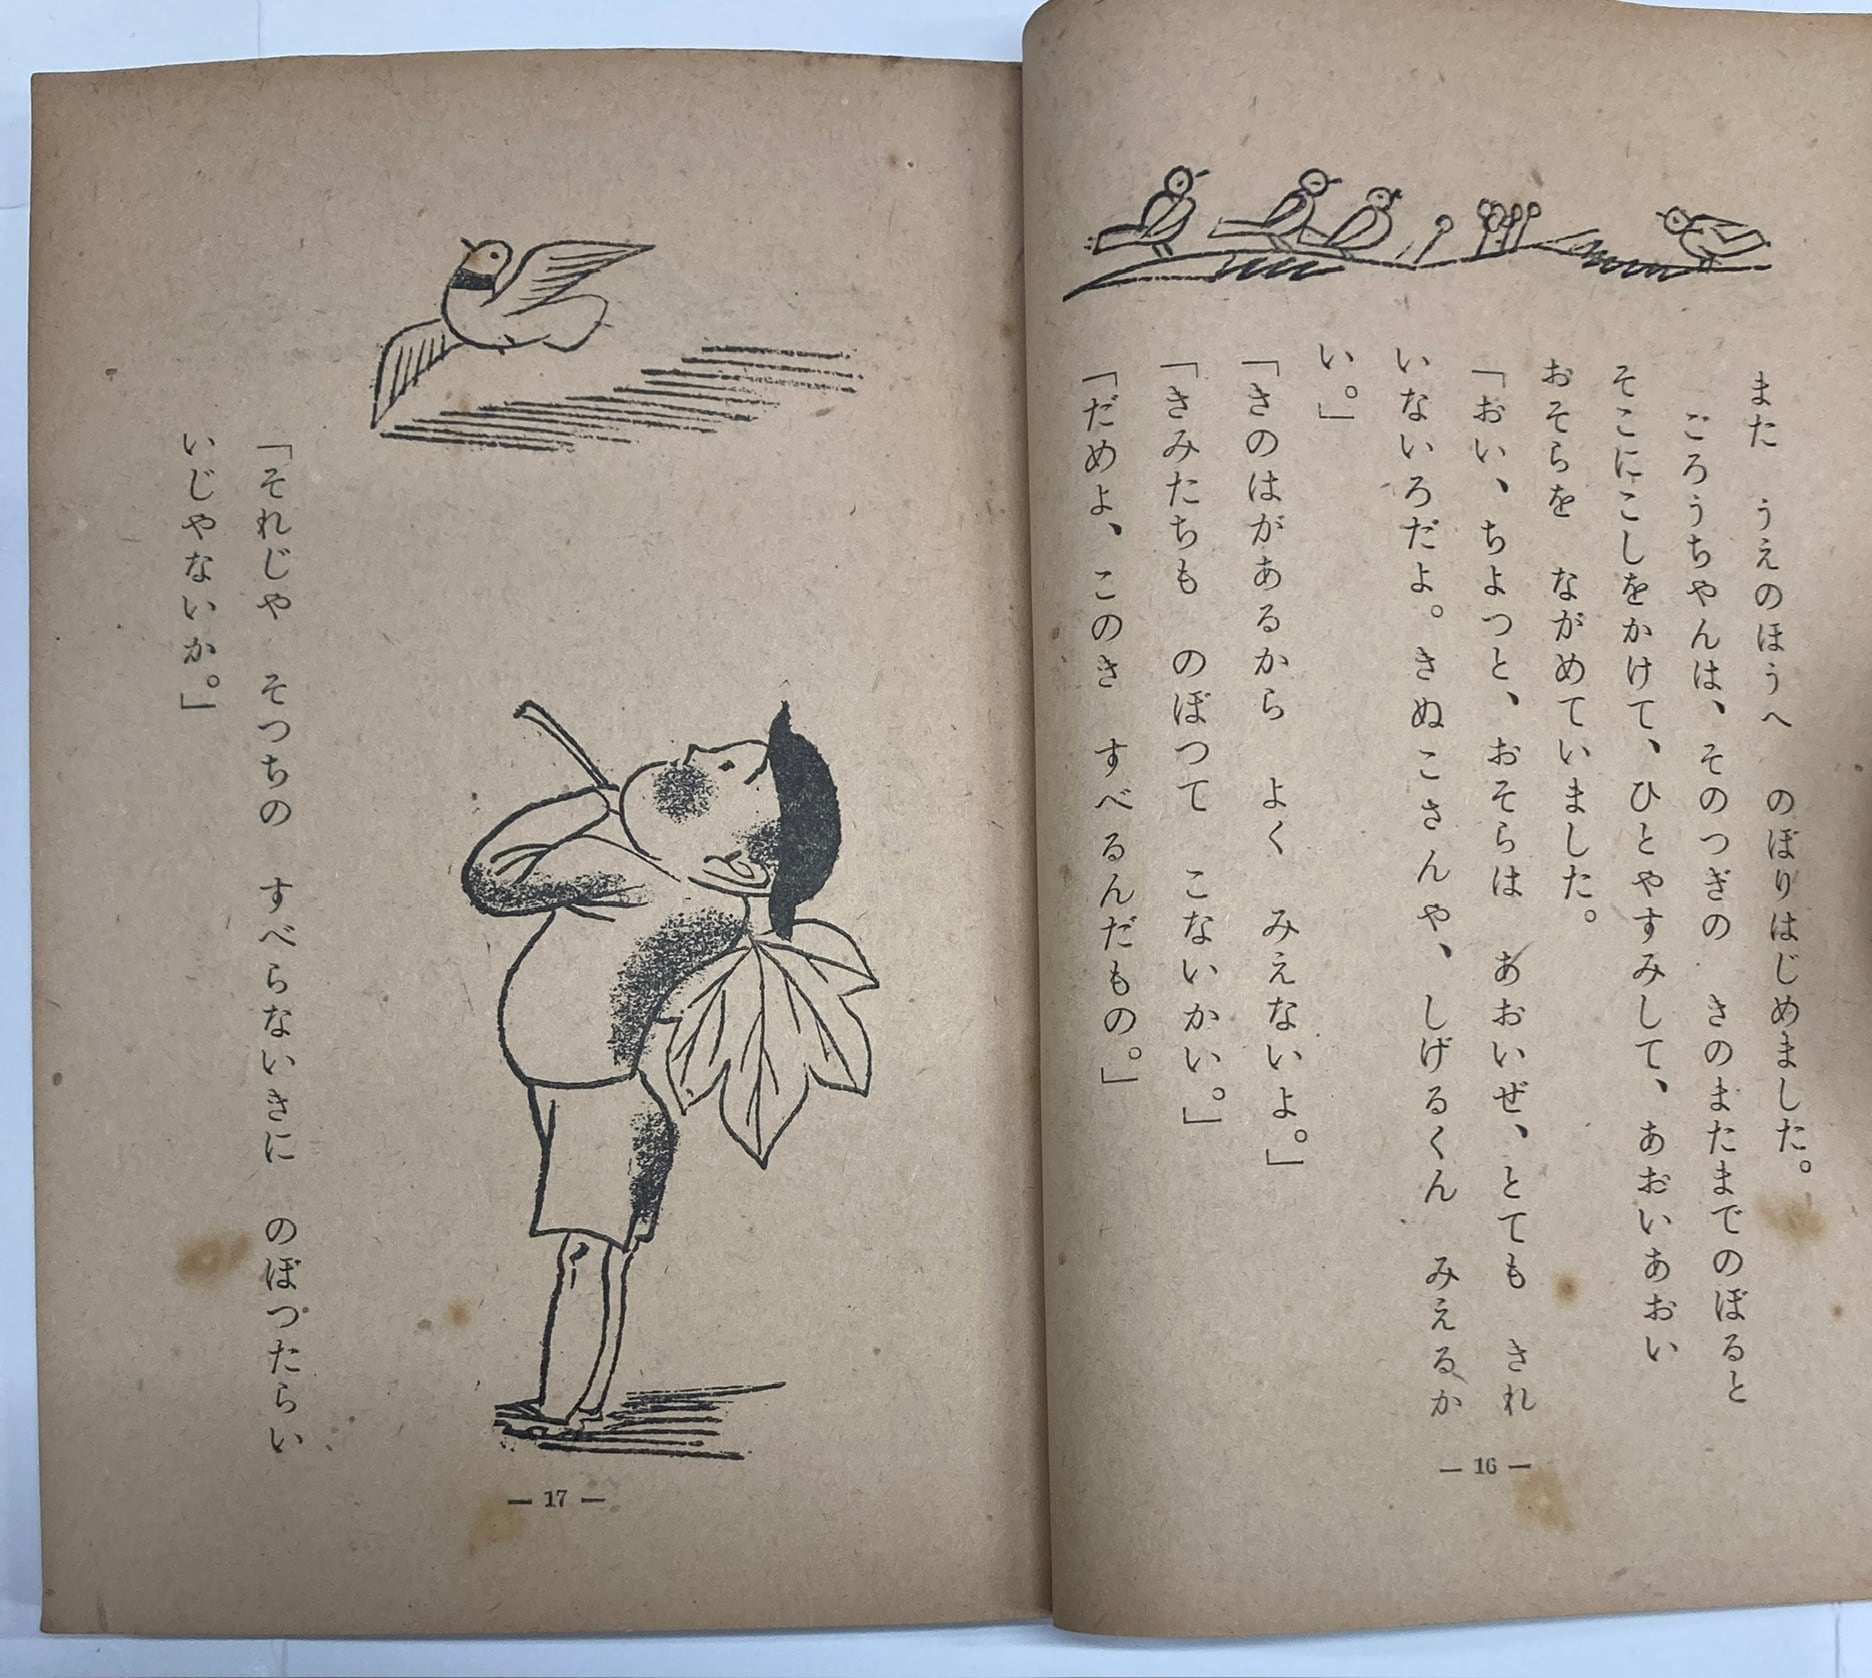 また　うえのほうへ　のぼりはじめました。
ごろうちやんは、そのつぎの　きのまたまでのぼると
そこにこしをかけて、ひとやすみして、あおいあおい
おそらを　ながめていました。
「おい、ちよつと、おそらは　あおいぜ、とても　きれ
いないろだよ。きぬこさんや、しげるくん　みえるか
い。」
「きのはがあるから　よく　みえないよ。」
「きみたちも　のぼつて　こないかい。」
「だめよ、このき　すべるんだもの。」
— 16 —
「それじや　そつちの　すべらないきに　のぼつたらい
いじやないか。」
— 17 —